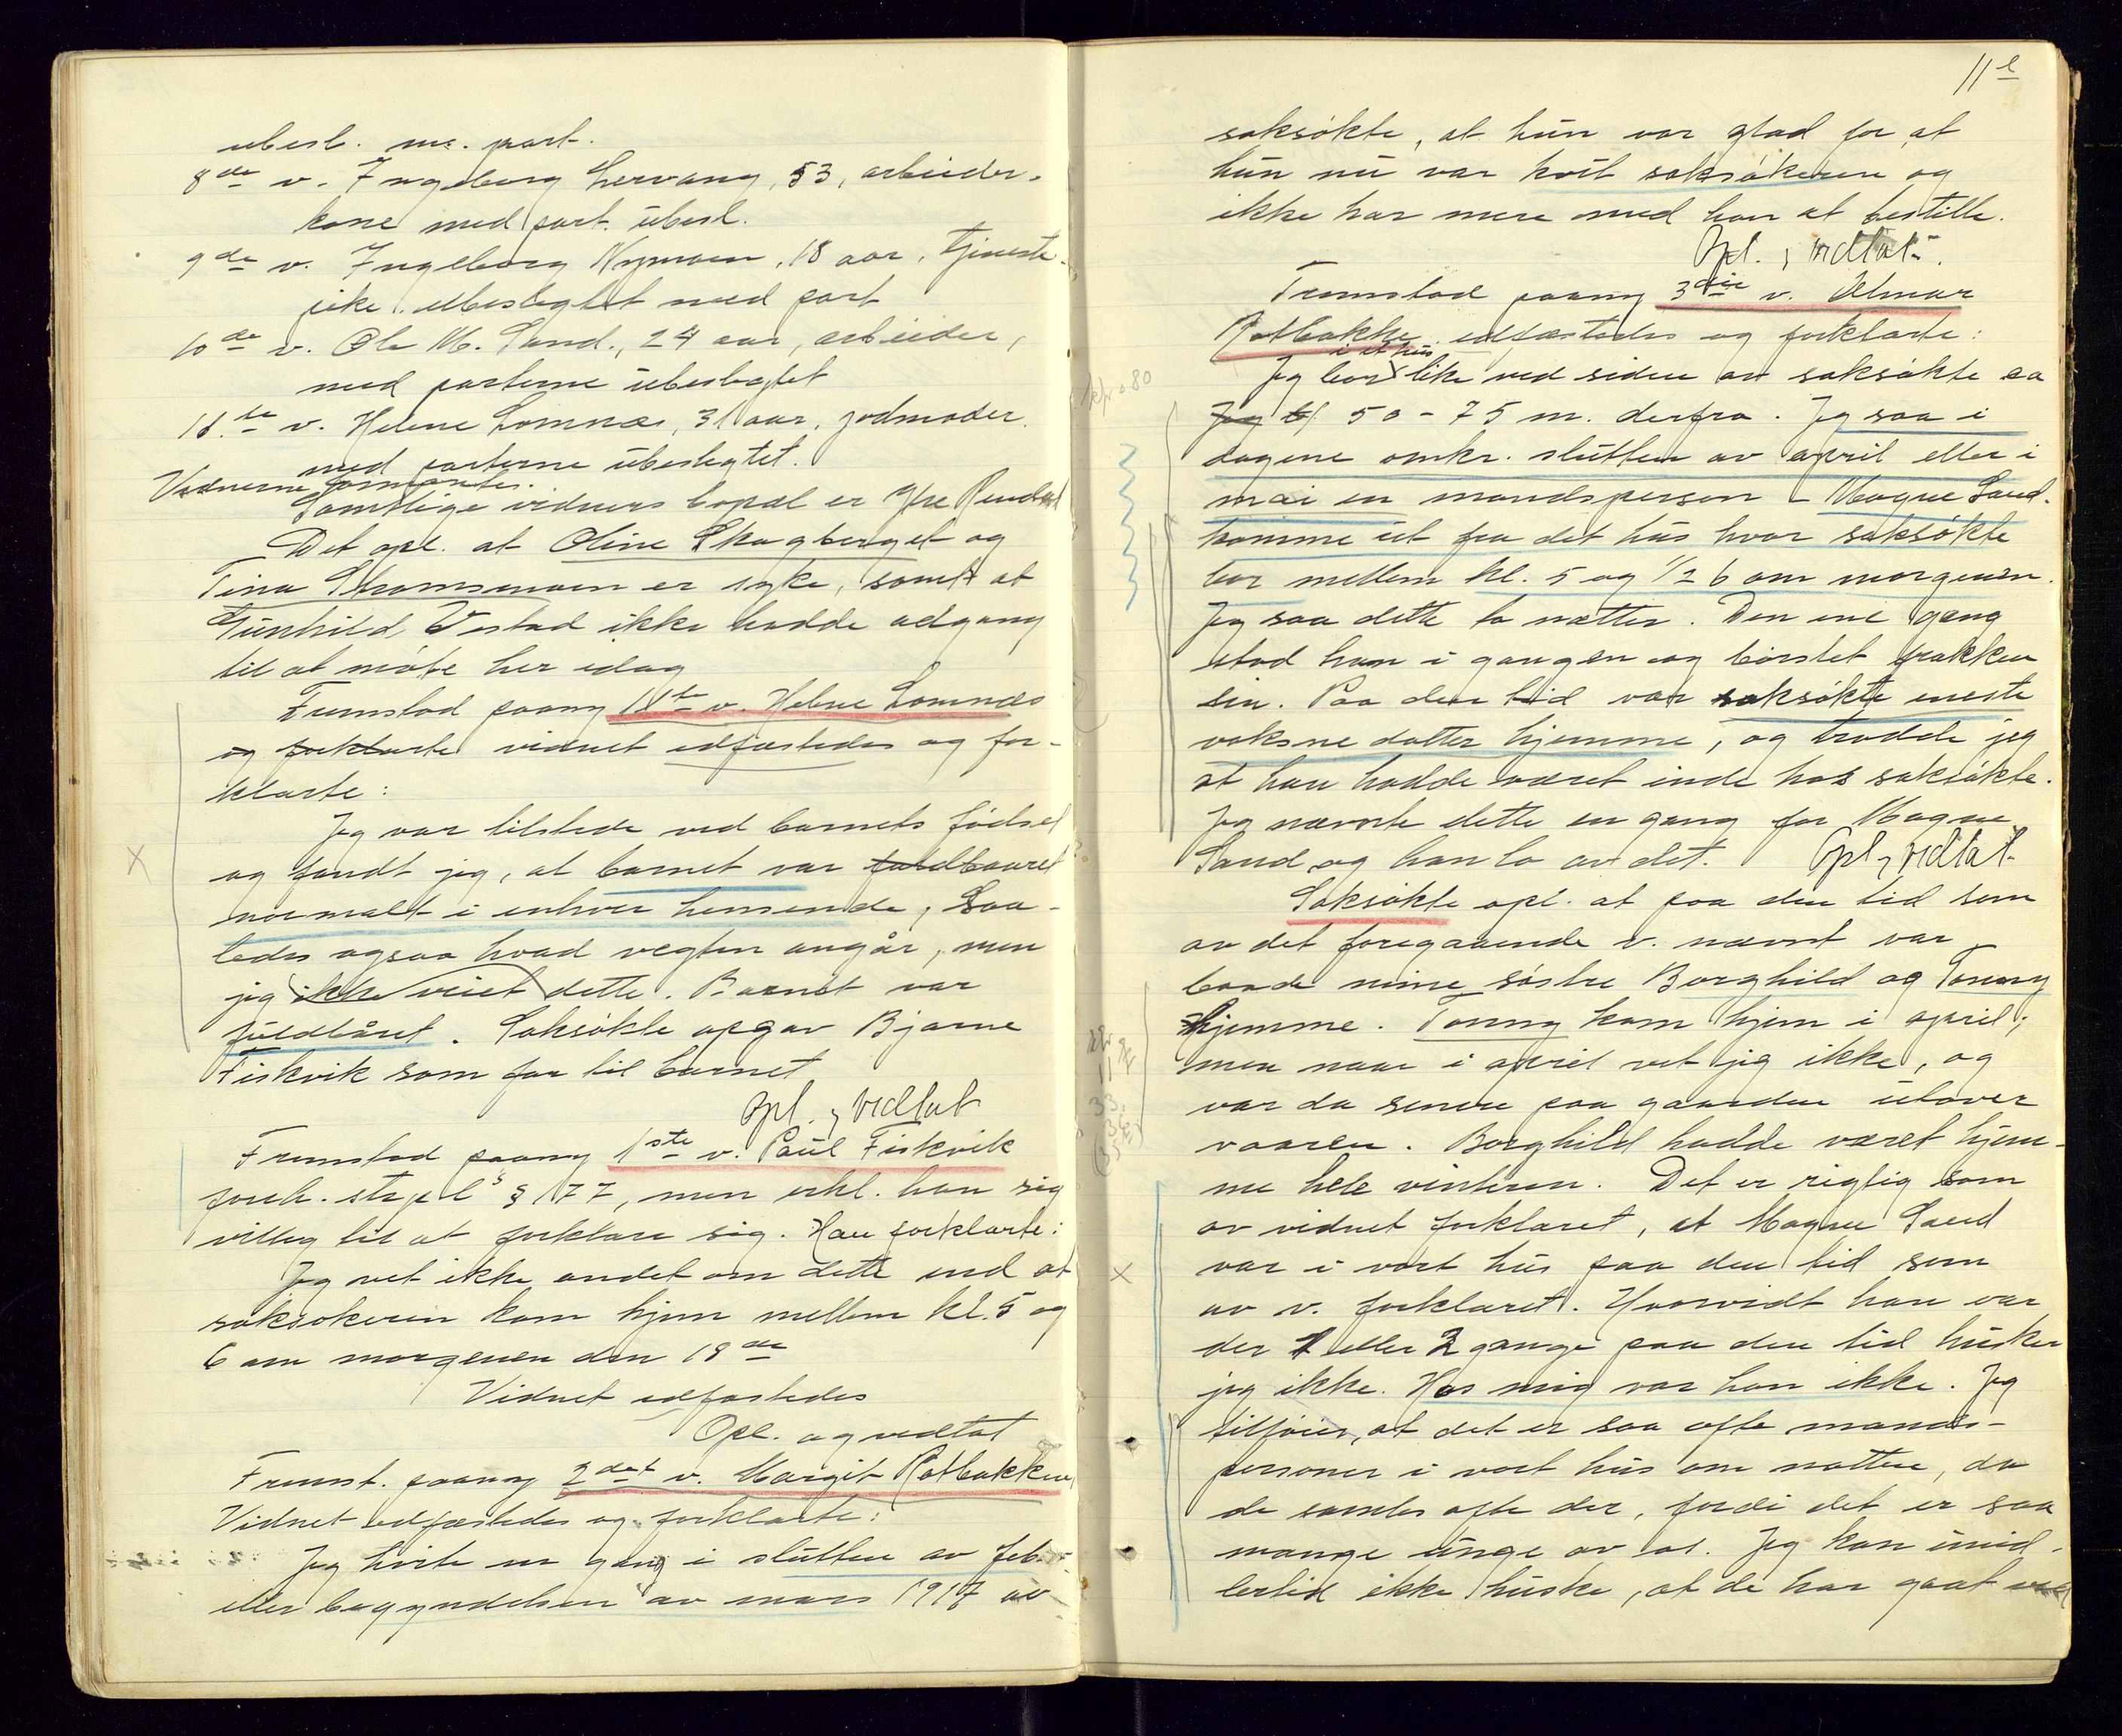 ubesl. m. part.
8de v. Ingeborg Lervang, 53, arbeider-
kone med part. ubesl.
9de v. Ingeborg Nymoen, 18 aar, tjeneste-
pike, ubeslegtet med part
10de v. Ole M. Sand., 24 aar, arbeider,
med parterne ubeslegtet
11.te v. Helene Lomnæs, 31 aar, jordmoder
med parterne ubeslegtet.
Vidnerne formantes.
Samtlige vidners bopæl er Øfre Rendal
Det opl. at Oline Skogberget og
Tina Strømsmoen er syke, samt at
Gunhild Vestad ikke hadde adgang
til at møte her idag
Fremstod paany 11te v. Helene Lomnæs
og forklarte vidnet edfæstedes og for-
klarte:
Jeg var tilstede ved barnets fødsel
og fandt jeg, at barnet var fuldbaaret
normalt i enhver henseende, Saa-
ledes ogsaa hvad vegten angår, men
jeg ikke veiet dette. Barnet var
fuldbåret. Saksøkte opgav Bjarne
Fiskvik som far til barnet
Opl. & vedtat
Fremstod paany 1ste v. Paul Fiskvik
foreh. strpl.s § 177, men erkl. han sig
villig til at forklare sig. Han forklarte:
Jeg vet ikke andet om dette end at
saksøkeren kom hjem mellem kl. 5 og
6 om morgenen den 18de
Vidnet edfæstedes
Opl. og vedtat
Fremst. paany 2det v. Margit Ratbakken
Vidnet edfæstedes og forklarte:
Jeg hørte en gang i slutten av feb.
eller begyndelsen av mars 1917 av
11
saksøkte, at hun var glad for at
hun nu var kvit saksøkeren og
ikke har mere med han at bestille.
Opl. & vedtat.
Fremstod paany 3die v. Elmar
Ratbakke edfæstedes og forklarte:
i et hus
Jeg bor like ved siden av saksøkte ca
Jeg 50 - 75 m. derfra. Jeg saa i
dagene omkr. slutten av april eller i
mai en mandsperson - Magne Sand.
komme ut fra det hus hvor saksøkte
bor mellem kl. 5 og 1/2 6 om morgenen.
Jeg saa dette to nætter. Den ene gang
stod han i gangen og børstet frakken
sin. Paa den tid var saksøkte eneste
voksne datter hjemme, og trodde jeg
at han hadde været inde hos saksøkte.
Jeg nævnte dette en gang for Magne
Sand, og han lo av det. Opl. & vedtat
Saksøkte opl. at paa den tid som
av det foregaaende v. nævnt var
baade mine søstre Borghild og Tonny
Hjemme. Tonny kom hjem i april;
men naar i april vet jeg ikke, og
var da senere paa gaarden utover
vaaren. Borghild hadde været hjem-
me hele vinteren. Det er rigtig som
av vidnet forklaret, at Magne Sand
var i vort hus paa den tid som
av v. forklaret. Hvorvidt han var
der 1 eller 2 gange paa den tid husker
jeg ikke. Hos mig var han ikke. Jeg
tilføier, at det er saa ofte mands-
personer i vort hus om natten, da
de samles ofte der, fordi det er saa
mange unge av os. Jeg kan imid-
lertid ikke huske, at de har gaat